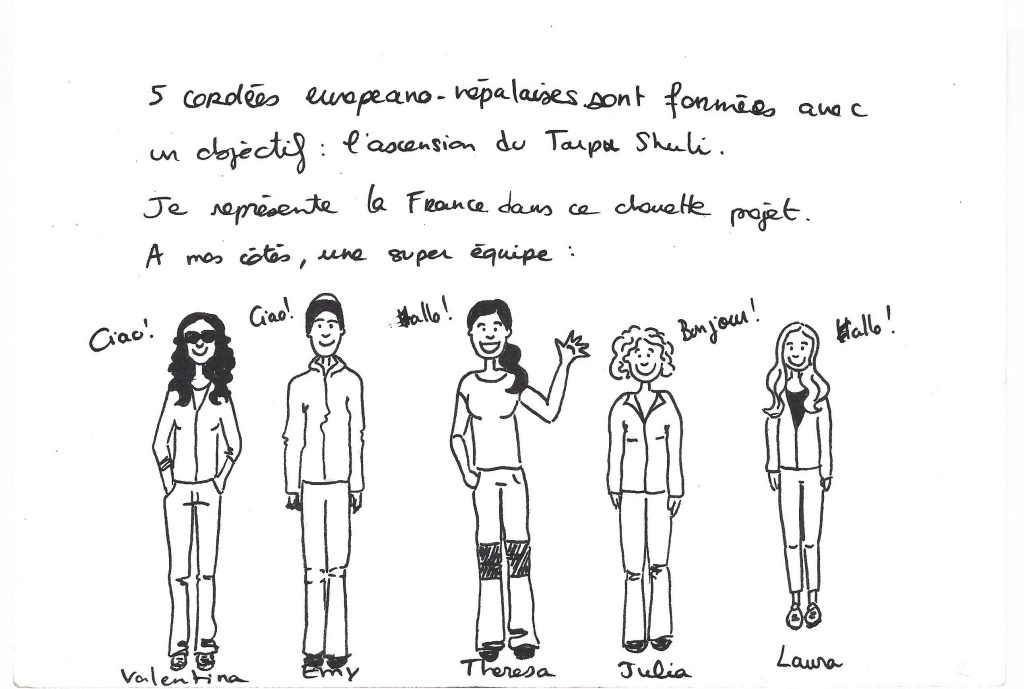 5 cordées européano-népalaises sont formées avec
un objectif : l'ascension du Tarpu Shuli.
Je représente la France dans ce chouette projet.
A mes côtés, une super équipe :
Ciao! Ciao! Hallo! Bonjour! Hallo!
Valentina Emy Theresa Julia Laura
2